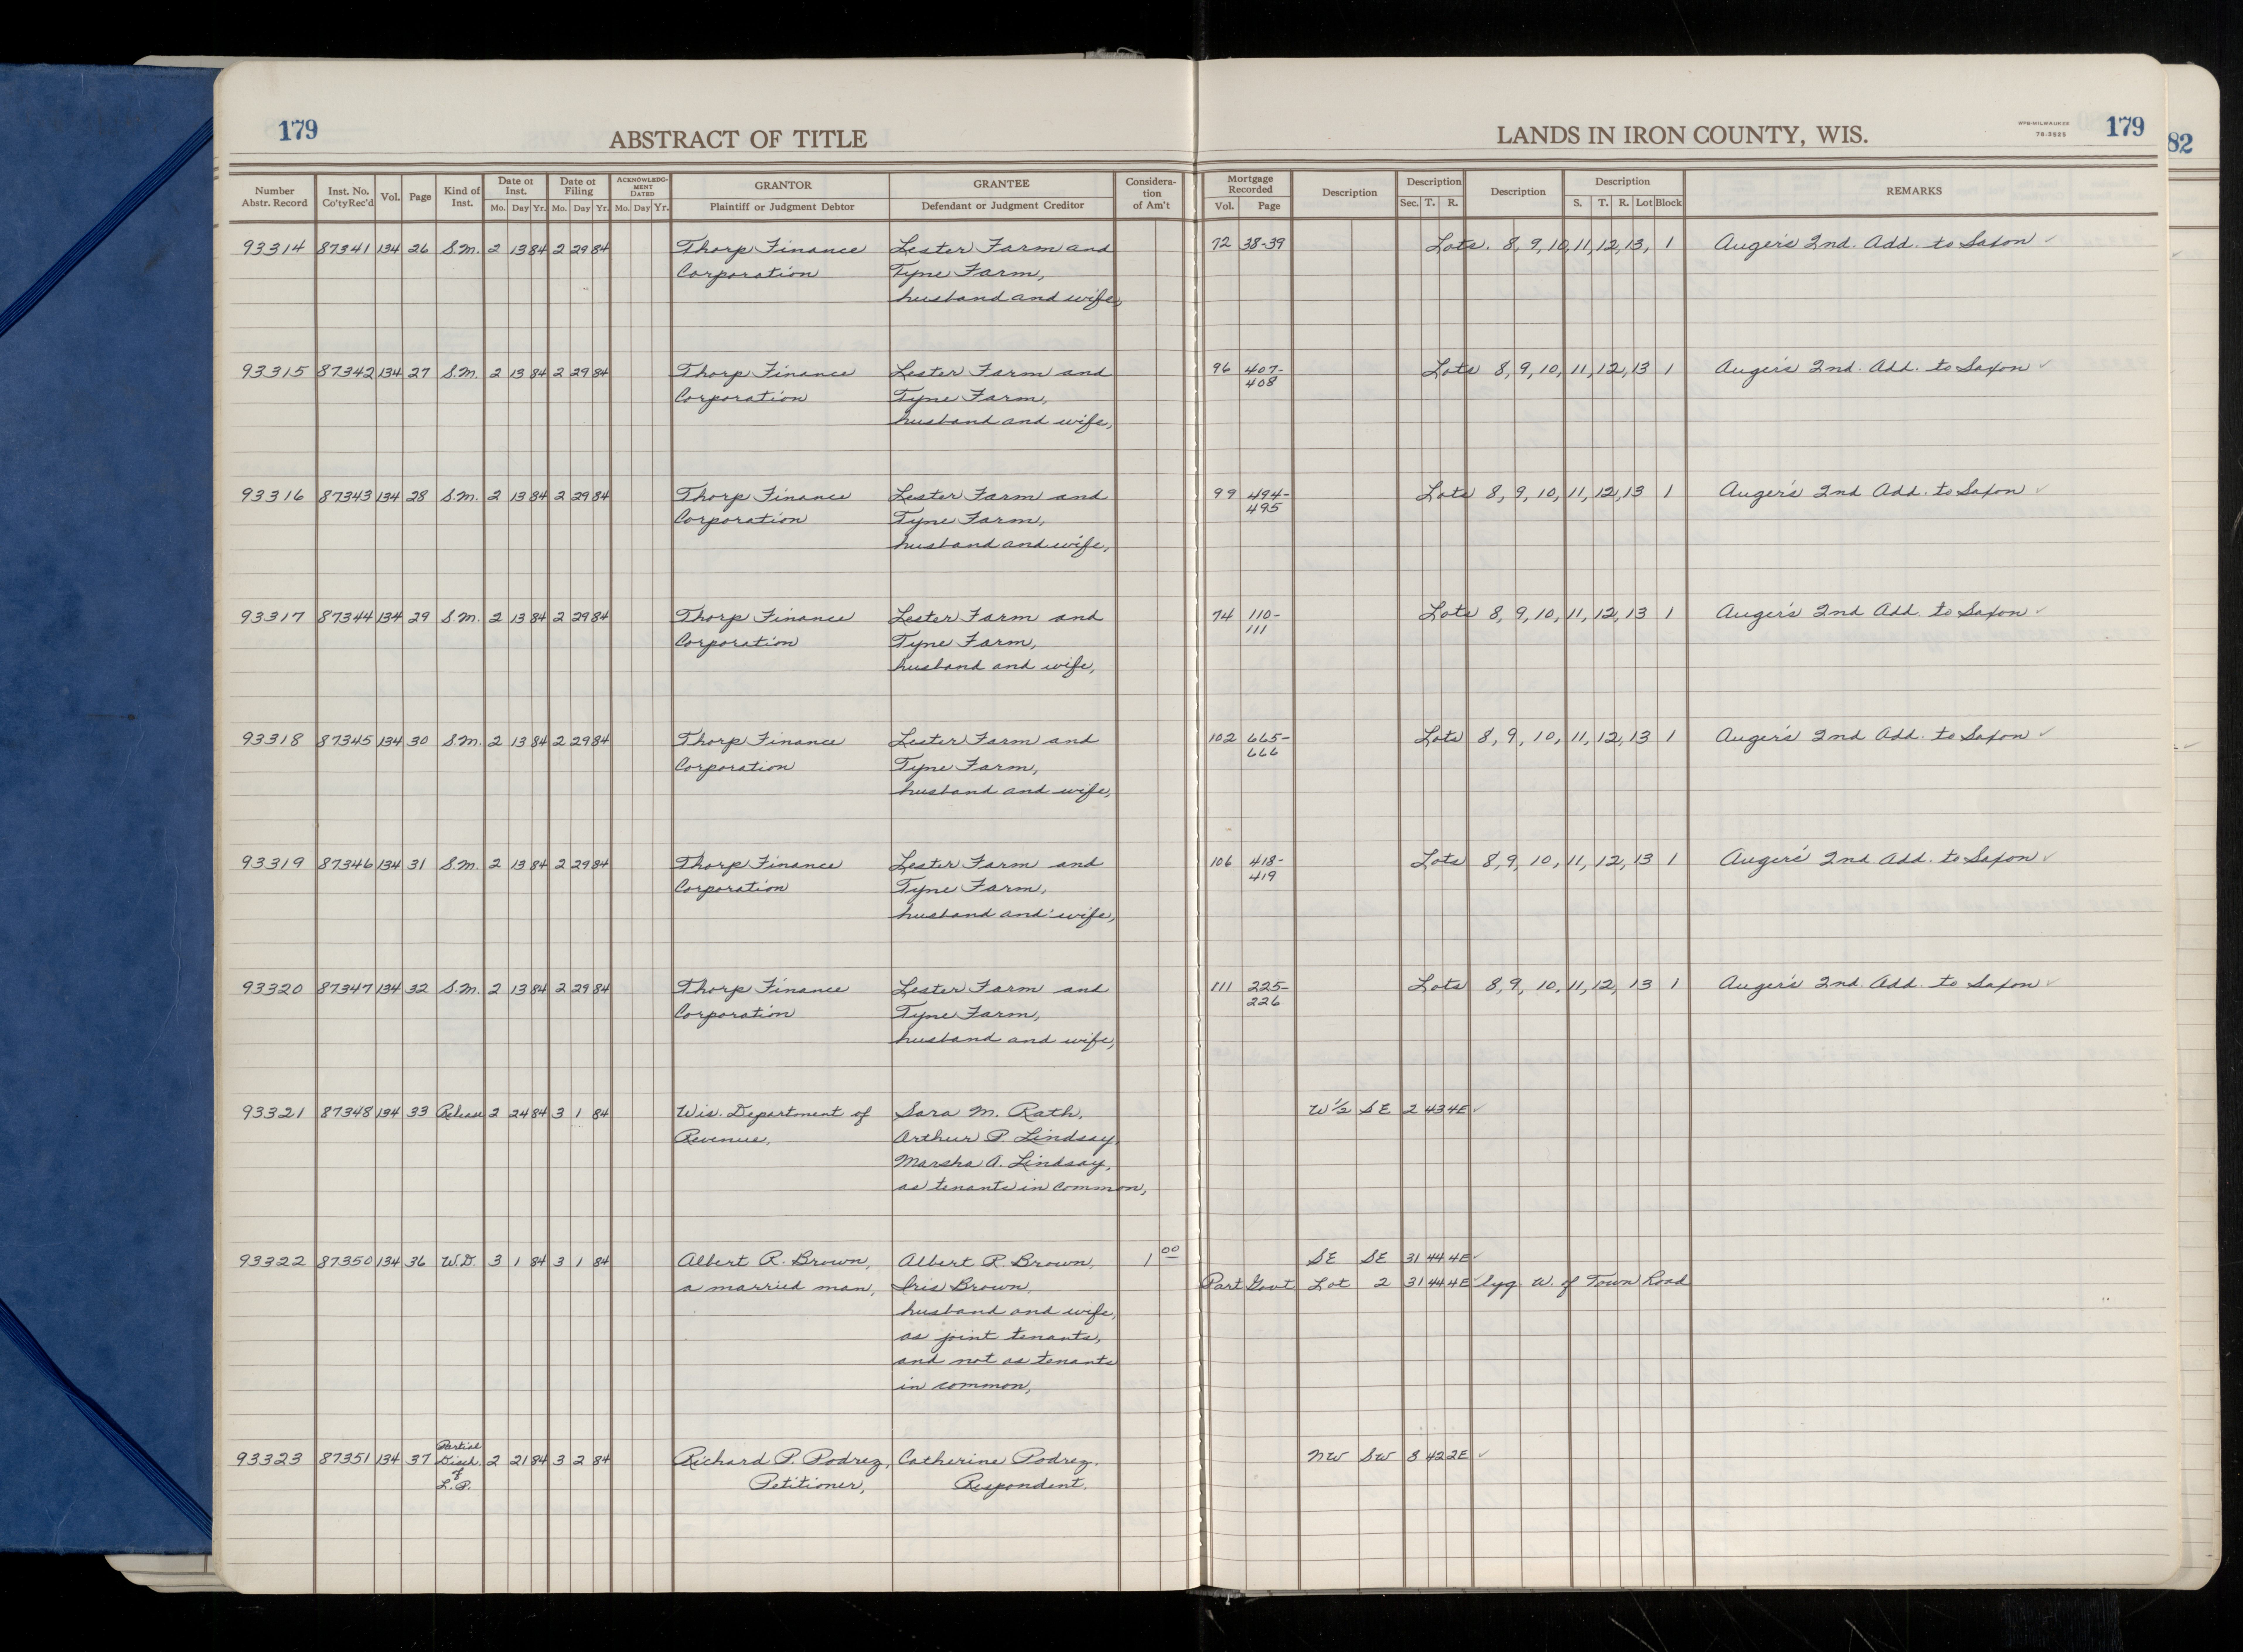 179 ABSTRACT OF TITLE LANDS IN IRON COUNTY, WIS. WPB-MILWAUKEE 179
78-3525
82
Number Inst. No. Vol. Page Kind of Date of Date of ACKNOWLEDG- GRANTOR GRANTEE Considera- Mortgage Description Description Description Description REMARKS
Abstr. Record Co'ty Rec'd Inst. Inst. Filing MENT DATED Plaintiff or Judgment Debtor Defendant or Judgment Creditor tion of Am't Recorded
Mo. Day Yr. Mo. Day Yr. Mo. Day Yr. Vol. Page Sec. T. R. S. T. R. Lot Block
93314 87341 134 26 S.M. 2 13 84 2 29 84 Thorp Finance Lester Farm and 72 38-39 Lots. 8, 9, 10, 11, 12, 13, 1 Auger's 2nd. Add. to Saxon ✓
Corporation Tyne Farm,
husband and wife,
93315 87342 134 27 S.M. 2 13 84 2 29 84 Thorp Finance Lester Farm and 96 407- Lots 8, 9, 10, 11, 12, 13 1 Auger's 2nd. Add. to Saxon ✓
408
Corporation Tyne Farm,
husband and wife,
93316 87343 134 28 S.M. 2 13 84 2 29 84 Thorp Finance Lester Farm and 99 494- Lots 8, 9, 10, 11, 12, 13 1 Auger's 2nd Add. to Saxon ✓
495
Corporation Tyne Farm,
husband and wife,
93317 87344 134 29 S.M. 2 13 84 2 29 84 Thorp Finance Lester Farm and 74 110- Lots 8, 9, 10, 11, 12, 13 1 Auger's 2nd Add. to Saxon ✓
111
Corporation Tyne Farm,
husband and wife,
93318 87345 134 30 S.M. 2 13 84 2 29 84 Thorp Finance Lester Farm and 102 665- Lots 8, 9, 10, 11, 12, 13 1 Auger's 2nd Add. to Saxon ✓
666
Corporation Tyne Farm,
husband and wife,
93319 87346 134 31 S.M. 2 13 84 2 29 84 Thorp Finance Lester Farm and 106 418- Lots 8, 9, 10, 11, 12, 13 1 Auger's 2nd Add. to Saxon ✓
419
Corporation Tyne Farm,
husband and wife,
93320 87347 134 32 S.M. 2 13 84 2 29 84 Thorp Finance Lester Farm and 111 225- Lots 8, 9, 10, 11, 12, 13 1 Auger's 2nd Add. to Saxon ✓
226
Corporation Tyne Farm,
husband and wife,
93321 87348 134 33 Release 2 24 84 3 1 84 Wis. Department of Sara M. Rath, W 1/2 SE 2 43 4E ✓
Revenue, Arthur P. Lindsay,
Marsha A. Lindsay,
as tenants in common,
93322 87350 134 36 W.D. 3 1 84 3 1 84 Albert R. Brown, Albert R. Brown, 1 00 SE SE 31 44 4E ✓
a married man, Iris Brown, Part Govt Lot 2 31 44 4E ✓ lyg. W. of Town Road
husband and wife,
as joint tenants,
and not as tenants
in common,
93323 87351 134 37 Partial Disch. of L.P. 2 21 84 3 2 84 Richard P. Podrez, Catherine Podrez, NW SW 8 42 2E ✓
Petitioner, Respondent.